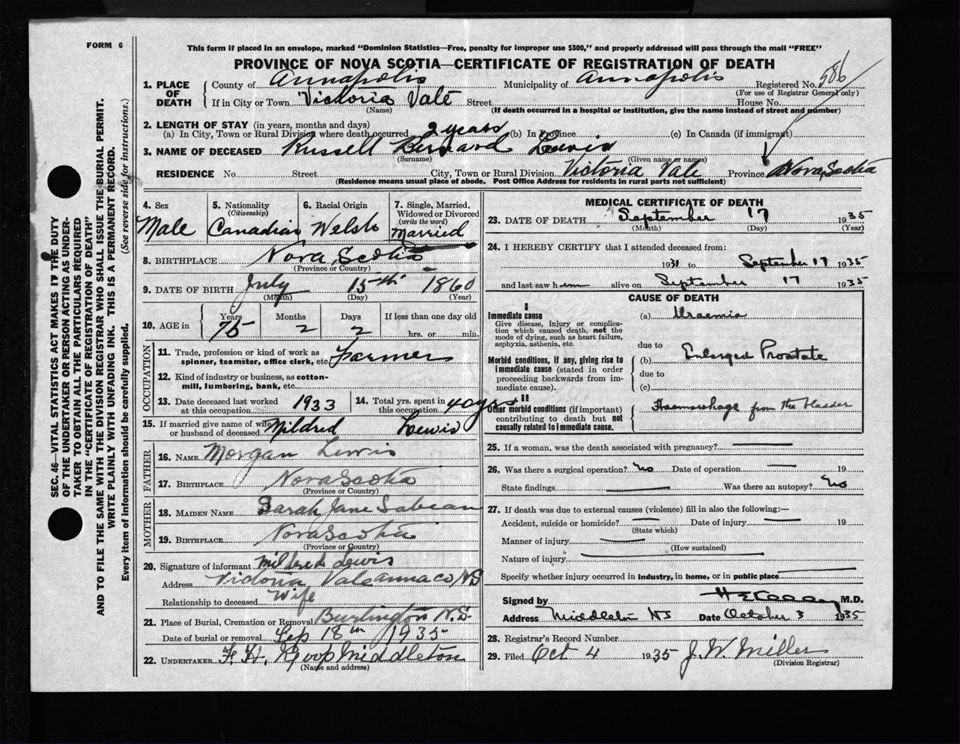 FORM 6
This form if placed in an envelope, marked "Dominion Statistics—Free, penalty for improper use $300," and properly addressed will pass through the mail "FREE"
PROVINCE OF NOVA SCOTIA—CERTIFICATE OF REGISTRATION OF DEATH
1. PLACE OF DEATH County of Annapolis Municipality of Annapolis Registered No. 586
(For use of Registrar General only)
If in City or Town Victoria Vale Street House No.
(Name) (If death occurred in a hospital or institution, give the name instead of street and number)
2. LENGTH OF STAY (in years, months and days)
(a) In City, Town or Rural Division where death occurred 2 years (b) In Province (c) In Canada (if immigrant)
3. NAME OF DECEASED Russell Bernard Lewis
(Surname) (Given name or names)
RESIDENCE No. Street City, Town or Rural Division Victoria Vale Province Nova Scotia
(Residence means usual place of abode. Post Office Address for residents in rural parts not sufficient)
4. Sex 5. Nationality (Citizenship) 6. Racial Origin 7. Single, Married, Widowed or Divorced (write the word)
Male Canadian Welsh Married
8. BIRTHPLACE Nova Scotia
(Province or Country)
9. DATE OF BIRTH July 15th 1860
(Month) (Day) (Year)
10. AGE in Years Months Days If less than one day old
75 2 2 hrs. or min.
OCCUPATION
11. Trade, profession or kind of work as spinner, teamster, office clerk, etc. Farmer
12. Kind of industry or business, as cotton-mill, lumbering, bank, etc.
13. Date deceased last worked at this occupation 1933 14. Total yrs. spent in this occupation 40 yrs
15. If married give name of wife or husband of deceased Mildred Lewis
FATHER
16. NAME Morgan Lewis
17. BIRTHPLACE Nova Scotia
(Province or Country)
MOTHER
18. MAIDEN NAME Sarah Jane Sabean
19. BIRTHPLACE Nova Scotia
(Province or Country)
20. Signature of informant Mildred Lewis
Address Victoria Vale Anna co NS
Relationship to deceased Wife
21. Place of Burial, Cremation or Removal Burlington N.S.
Date of burial or removal Sep 18th 1935
22. UNDERTAKER F. H. Roop Middleton
(Name and address)
MEDICAL CERTIFICATE OF DEATH
23. DATE OF DEATH September 17 1935
(Month) (Day) (Year)
24. I HEREBY CERTIFY that I attended deceased from:
1931 to September 17 1935
and last saw h im alive on September 17 1935
CAUSE OF DEATH
I
Immediate cause (a) Uraemia
Give disease, injury or complication which caused death, not the mode of dying, such as heart failure, asphyxia, asthenia, etc.
due to
Morbid conditions, if any, giving rise to immediate cause (stated in order proceeding backwards from immediate cause). (b) Enlarged Prostate
due to
(c)
II
Other morbid conditions (if important) contributing to death but not causally related to immediate cause. Haemorrhage from the bladder
25. If a woman, was the death associated with pregnancy?
26. Was there a surgical operation? no Date of operation 19
State findings Was there an autopsy? no
27. If death was due to external causes (violence) fill in also the following:—
Accident, suicide or homicide? Date of injury 19
(State which)
Manner of injury
(How sustained)
Nature of injury
Specify whether injury occurred in industry, in home, or in public place
Signed by M.D.
Address Middleton NS Date October 3 1935
28. Registrar's Record Number
29. Filed Oct 4 1935 J. W. Miller
(Division Registrar)
SEC. 46—VITAL STATISTICS ACT MAKES IT THE DUTY
OF THE UNDERTAKER OR PERSON ACTING AS UNDER-
TAKER TO OBTAIN ALL THE PARTICULARS REQUIRED
IN THE "CERTIFICATE OF REGISTRATION OF DEATH"
AND TO FILE THE SAME WITH THE DIVISION REGISTRAR WHO SHALL ISSUE THE BURIAL PERMIT.
WRITE PLAINLY WITH UNFADING INK. THIS IS A PERMANENT RECORD.
Every item of information should be carefully supplied. (See reverse side for instructions.)